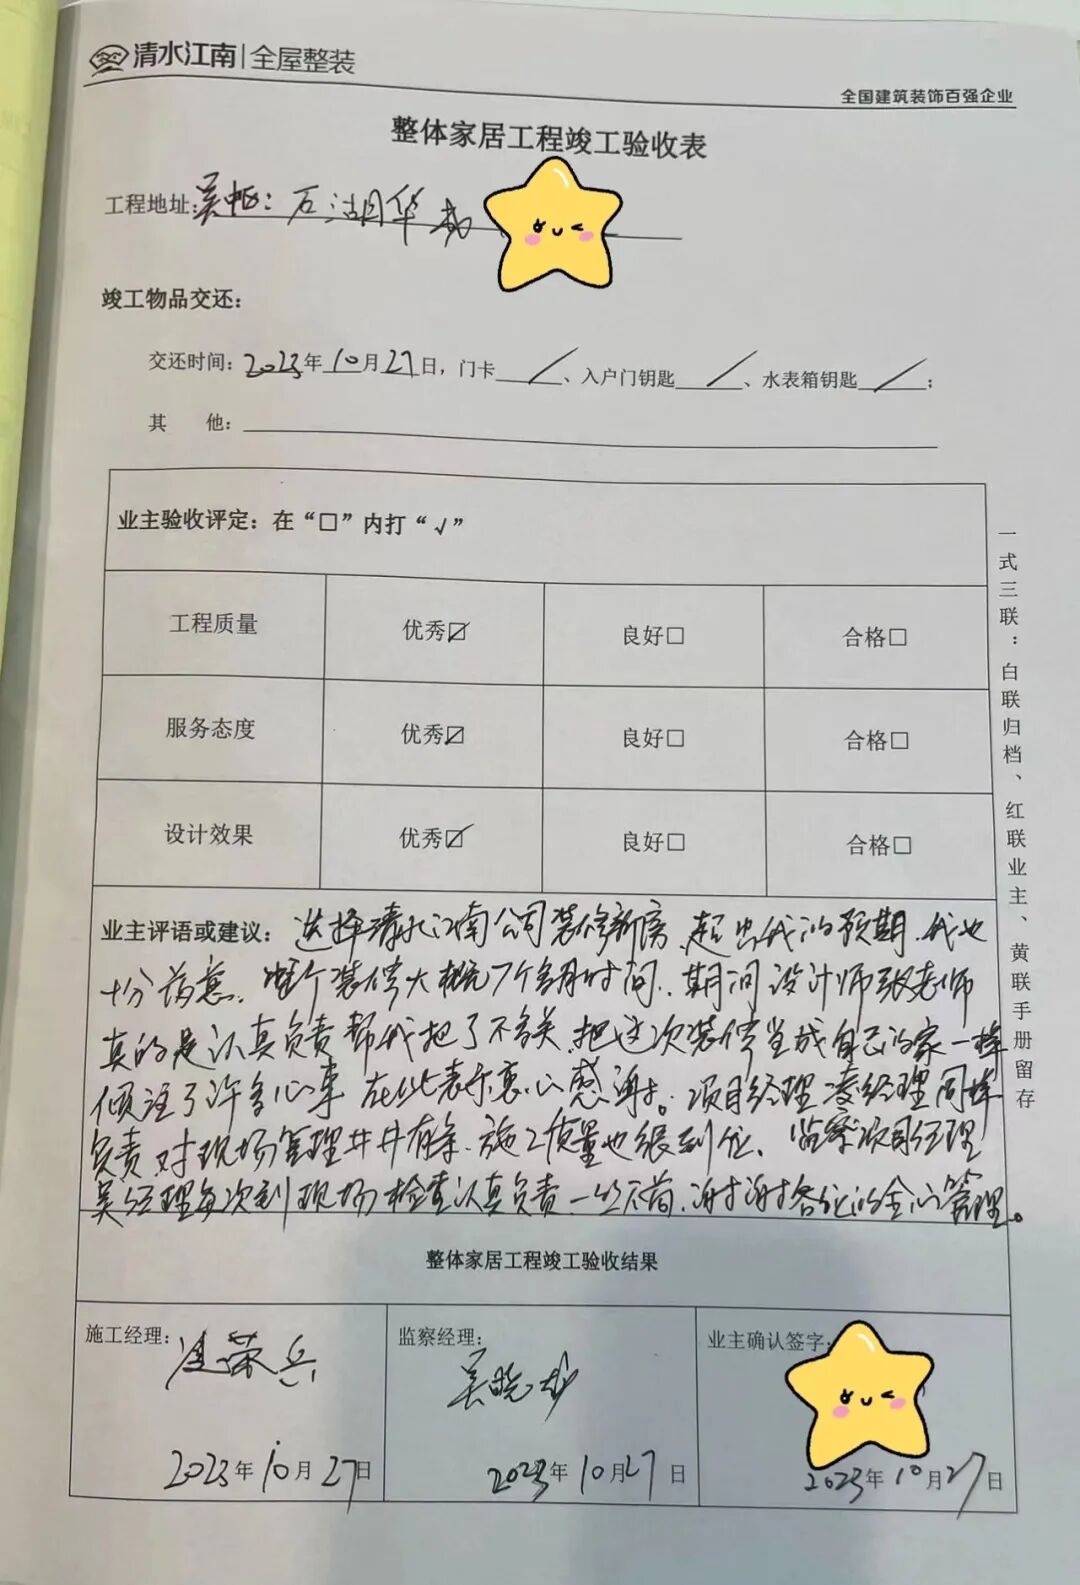 清水江南|全屋整装
全国建筑装饰百强企业
整体家居工程竣工验收表
工程地址:吴中区:石湖月华
竣工物品交还:
交还时间:2023年10月27日,门卡/、入户门钥匙/、水表箱钥匙/;
其 他:
业主验收评定:在“□”内打“√”
工程质量 优秀☑ 良好□ 合格□
服务态度 优秀☑ 良好□ 合格□
设计效果 优秀☑ 良好□ 合格□
业主评语或建议:选择清水江南公司装修新房,超出我的预期,我也
十分满意。整个装修大概7个多月时间,期间设计师张老师
真的是认真负责帮我把了不少关,把这次装修当成自己的家一样
倾注了许多心事,在此表示衷心感谢。项目经理凌经理同样
负责,对现场管理井井有条,施工质量也很到位。监察项目经理
吴经理每次到现场检查认真负责一丝不苟,谢谢各位的全心管理。
整体家居工程竣工验收结果
施工经理:凌荣兵
2023年10月27日
监察经理:吴晓
2023年10月27日
业主确认签字:
2023年10月27日
一式三联:白联归档、红联业主、黄联手册留存